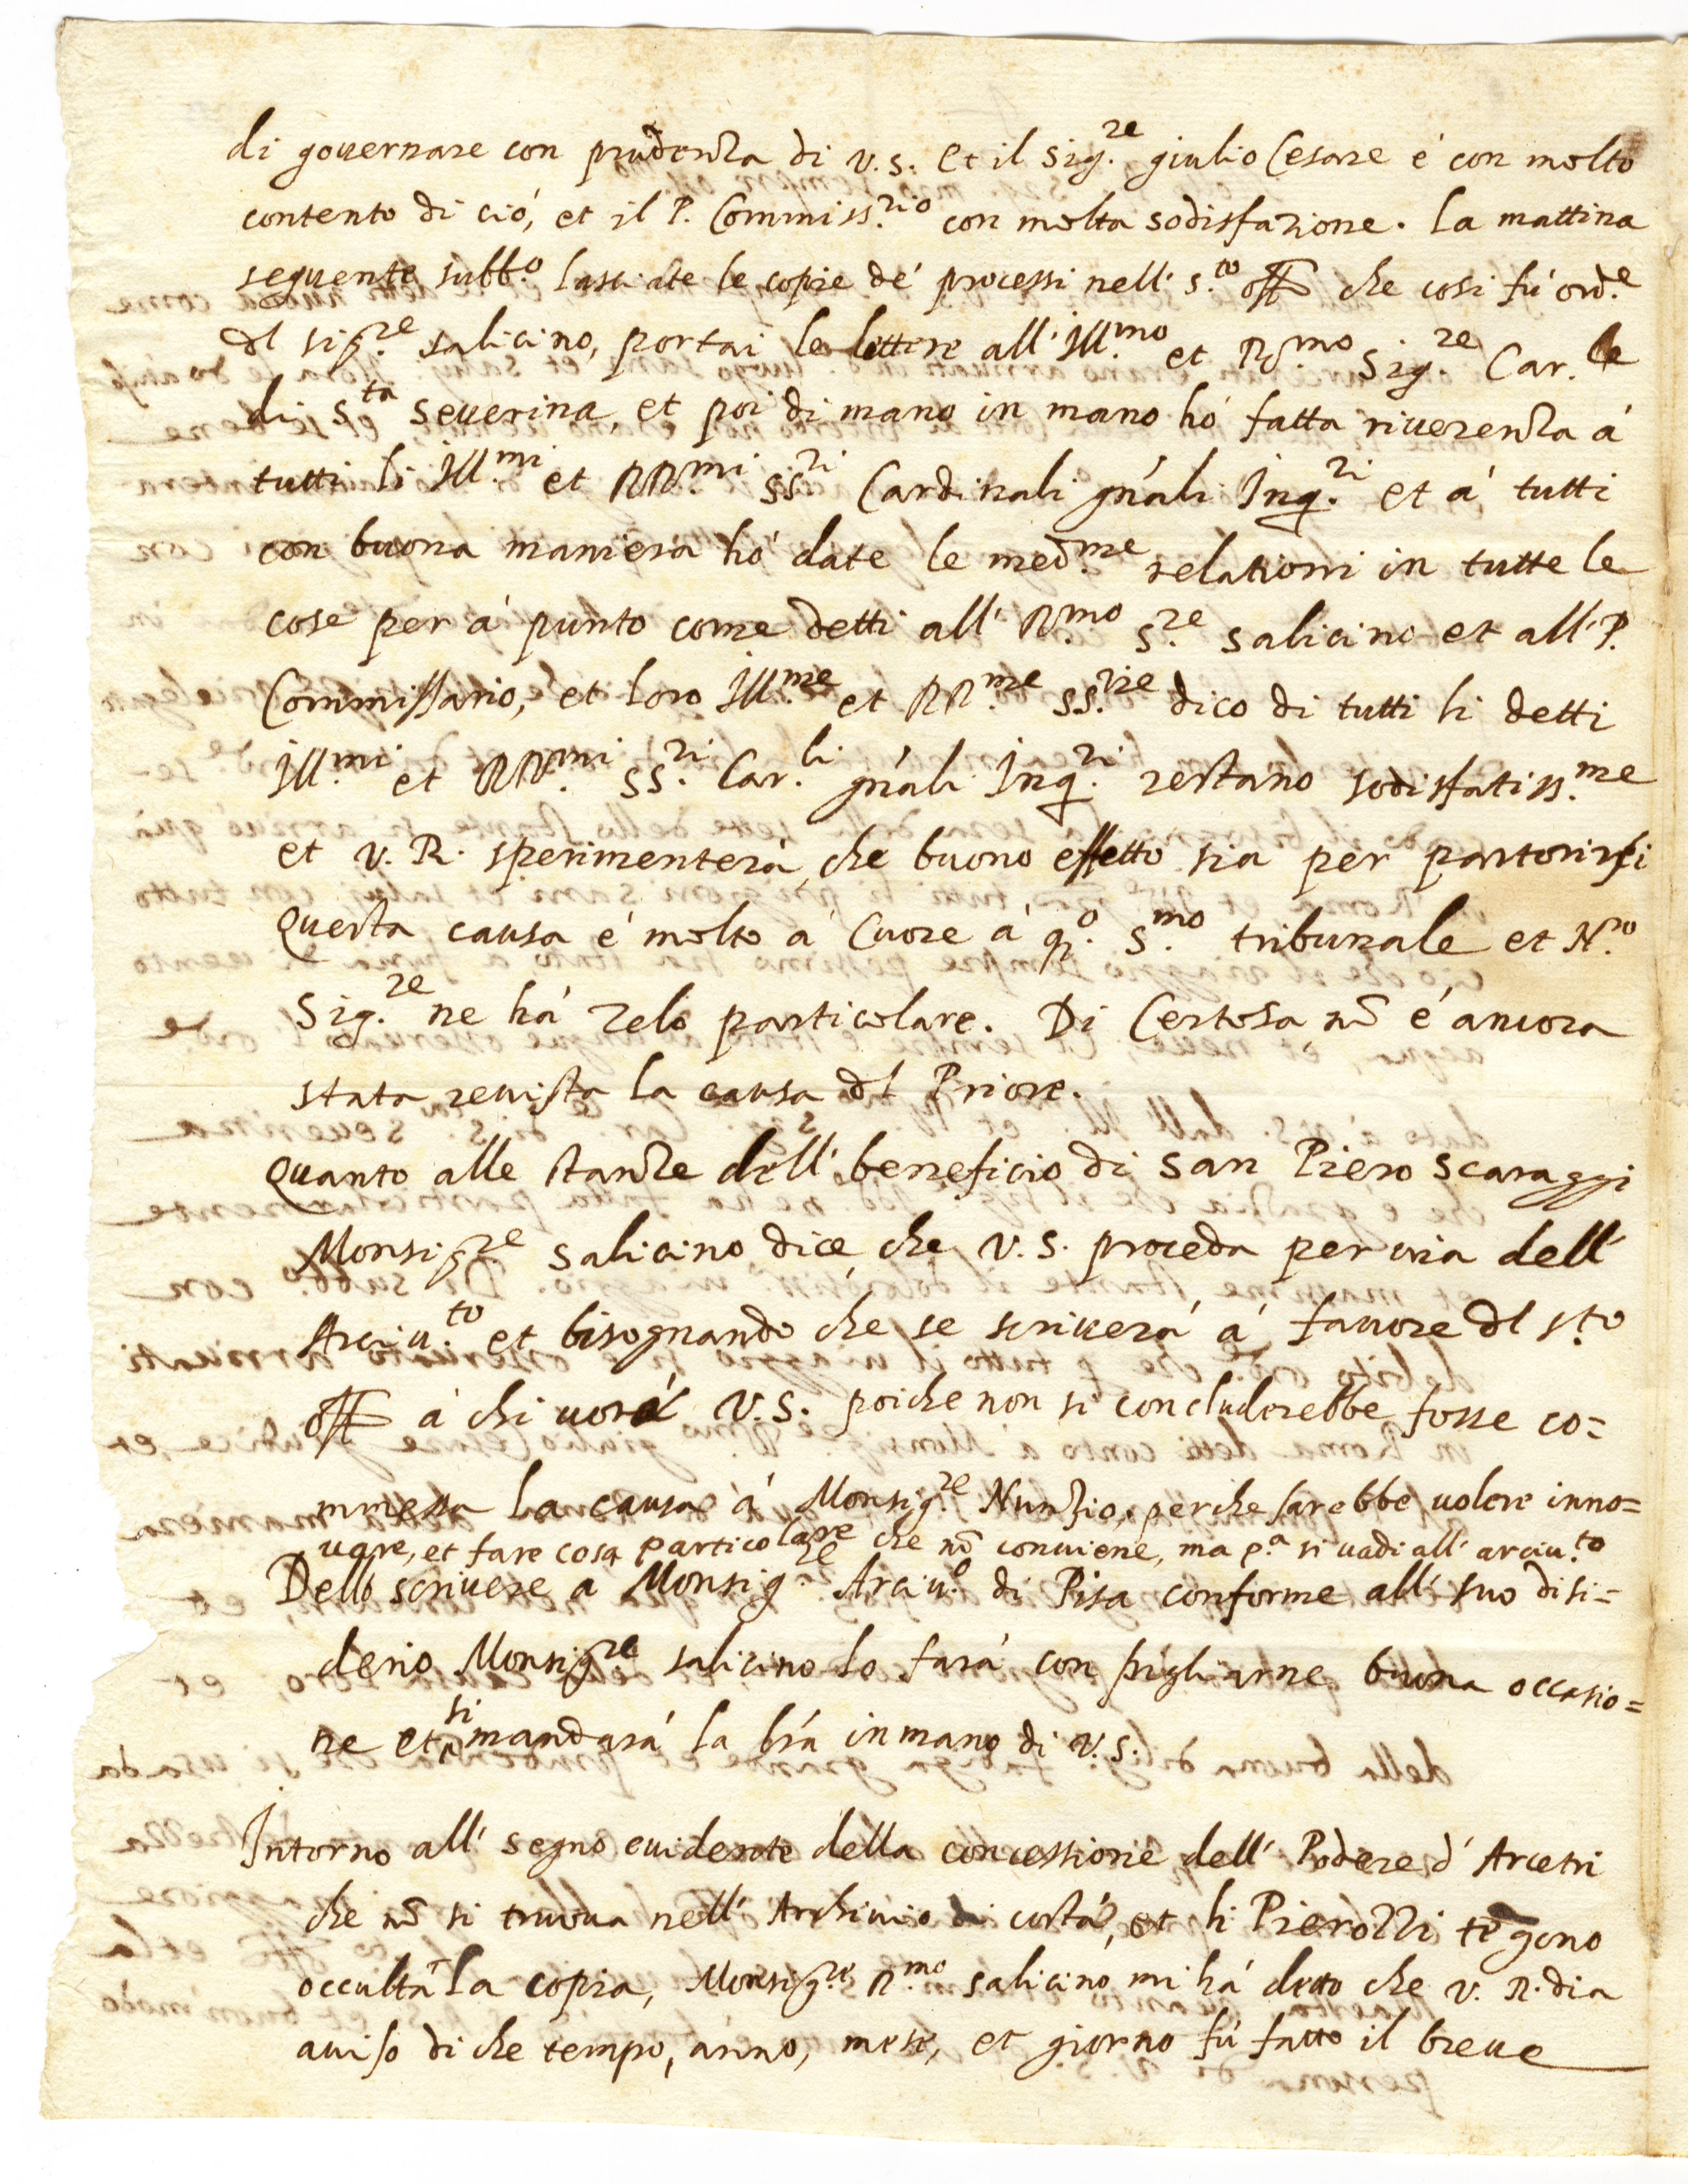 di gouernare con prudenza di V.S. Et il Sig.re giulio Cesare é con molto
contento di ció, et il P. Commiss.rio con molta sodisfazione. La mattina
sequente subb.o lasciate le copie de' processi nell' S.to off che cosi fú ord.e
dl sig.re salicino, portai le lettere all' Ill.mo et R.mo Sig.re Car.le
di S.ta Seuerina, et poi di mano in mano hó fatta riuerenza á
tutti li Ill.mi et RR.mi SS.ri Cardinali gn'ali Inq.ri et á tutti
con buona maniera hó date le med.me relationi in tutte le
cose per á punto come detti all' R.mo S.re salicino et all' P.
Commissario, et loro Ill.me et RR.me SS.rie dico di tutti li detti
Ill.mi et RR.mi SS.ri Car.li gn'ali Inq.ri restano sodisfatiss.me
et V. R. sperimenterá, che buono effetto sia per partorirsi
Questa causa é molto á Cuore á q.o S.mo tribunale et N.ro
Sig.re ne há Zelo particolare. Di Certosa nō é ancora
stata reuista la causa dl Priore.
Quanto alle stanze dell' beneficio di San Piero Scaraggi
Monsig.re Salicino dice, che V.S. proceda per uia dell'
Arciu.to et bisognando che se scriuerá á fauore dl s.to
off á chi uorá V.S. poiche non si concluderebbe fosse co=
mmessa la causa á Monsig.re Nunzio, perche sarebbe uolere inno=
uare, et fare cosa particolare che nō conuiene, ma p.a si uadi all' arciu.to
Dello scriuere a Monsig.re Arciu.o di Pisa conforme all' suo disi=
derio Monsig.re salicino lo fará con pigliarne buona occasio=
ne et si mandará la lr'a in mano di V.S.
Intorno all' segno euidente della concessione dell' Podere d' Arcetri
che nō si truoua nell' Archiuio di costá, et li Pierozzi tēgono
occultā la copia, Monsig.re R.mo salicino mi há detto che V. R. dia
auiso di che tempo, anno, mese, et giorno fú fatto il breue